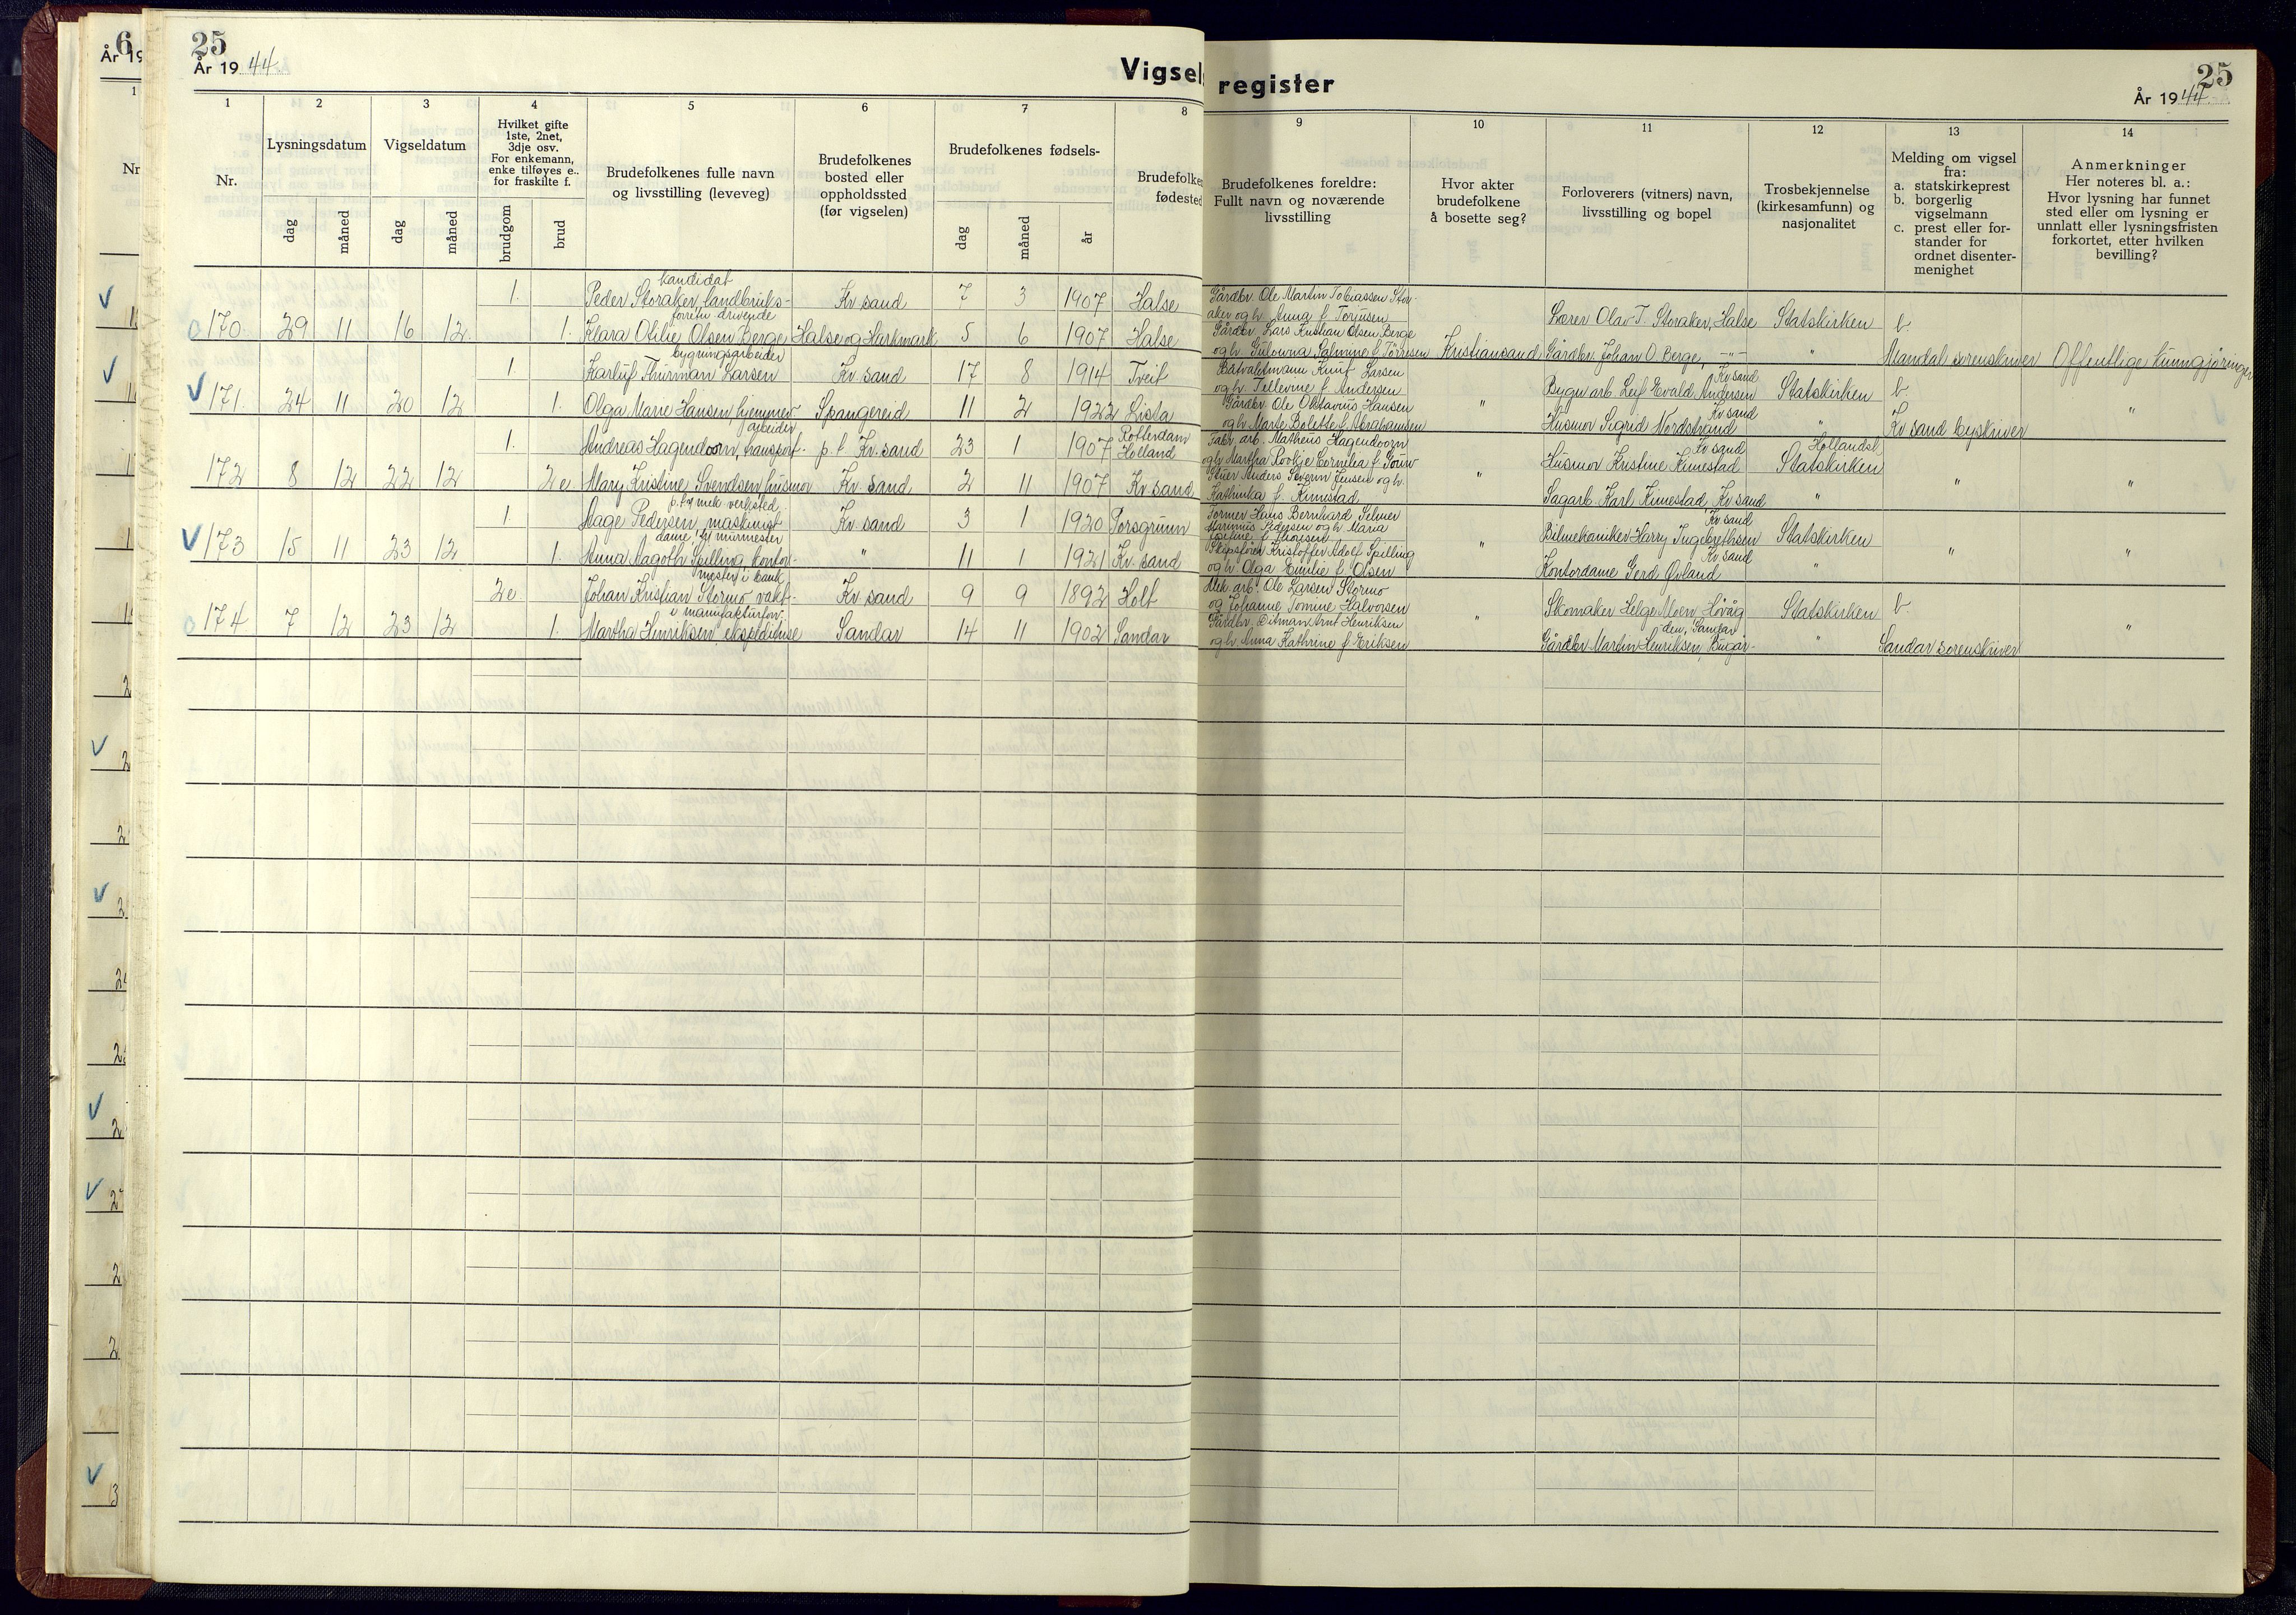 25
År 1944
Vigsel
register
25
År 1944
6
År 19
1
Nr
1 2 3 4 5 6 7 8 9 10 11 12 13 14
Nr.
Lysningsdatum
dag måned
Vigseldatum
dag måned
Hvilket gifte
1ste, 2net,
3dje osv.
For enkemann,
enke tilføyes e.,
for fraskilte f.
brudgom brud
Brudefolkenes fulle navn
og livsstilling (leveveg)
Brudefolkenes
bosted eller
oppholdssted
(før vigselen)
Brudefolkenes fødsels-
dag måned år
Brudefolke
fødested
Brudefolkenes foreldre:
Fullt navn og noværende
livsstilling
Hvor akter
brudefolkene
å bosette seg?
Forloverers (vitners) navn,
livsstilling og bopel
Trosbekjennelse
(kirkesamfunn) og
nasjonalitet
Melding om vigsel
fra:
a. statskirkeprest
b. borgerlig
vigselmann
c. prest eller for-
stander for
ordnet disenter-
menighet
Anmerkninger
Her noteres bl. a.:
Hvor lysning har funnet
sted eller om lysning er
unnlatt eller lysningsfristen
forkortet, etter hvilken
bevilling?
kandidat
1. Peder Storaker, landbruks- Kv.sand 7 3 1907 Halse
Gårdbr. Ole Martin Tobiassen Stor-
aker og h. Anna f. Torjusen
Lærer Olav T. Storaker, Halse Statskirken b.
forretn. drivende
170. 29 11 16 12 1. Klara Otilie Olsen Berge Halse og Harkmark 5 6 1907 Halse
Gårdbr. Lars Kristian Olsen Berge
og h. Gulowna Salmine f. Tørresen Kristiansand Gårdbr. Johan O. Berge, -"- " Mandal sorenskriver Offentlige kunngjøringer
bygningsarbeider
1. Karluf Thurman Larsen Kv.sand 17 8 1914 Tveit
Båtvaktmann Knut Larsen
og h. Tellevine f. Andersen
Kv.sand
Bygn.arb. Leif Evald Andersen Statskirken b.
171. 24 11 20 12 1. Olga Marie Hansen, hjemmev. Spangereid 11 2 1922 Lista
Gårdbr. Ole Oktavius Hansen
og h. Marte Bolette f. Abrahamsen "
Kv.sand
Husmor Sigrid Nordstrand " Kv.sand byskriver "
arbeider
1. Andreas Hagendoorn, transport- p.t. Kv.sand 23 1 1907 Rotterdam
Holland
Fabr. arb. Matheus Hagendoorn
og h. Martha Rookje Cornelia f. Gouw
Kv.sand
Husmor Kristine Kimestad
Hollandsk
Statskirken
172 8 12 22 12 2e Mary Kristine Svendsen husmor Kv.sand 2 11 1907 Kv.sand
Stuer Anders Severin Jensen og h.
Kathinka f. Kimestad "
Sagarb. Karl Kimestad, Kv.sand " " "
p. t. mek. verksted
1. Aage Pedersen, maskinist Kv.sand 3 1 1920 Porsgrunn
Former Hans Bernhard Selmer
Marinius Pedersen og h. Maria
Josefine f. Thoresen
Kv.sand
Bilmekaniker Harry Ingebrethsen Statskirken
dame, h/ murmester
173 15 11 23 12 1. Anna Aagoth Spilling, kontor- " 11 1 1921 Kv.sand
Skipsfører Kristoffer Adolf Spilling
og h. Olga Emilie f. Olsen "
Kv.sand
Kontordame Gerd Øvland " " "
mester i bank
2e. Johan Kristian Stormo vakt- Kv.sand 9 9 1892 Holt
Mek. arb. Ole Larsen Stormo
og Johanne Tomine Halvorsen
Skomaker Helge Moen, Høvåg Statskirken b.
i manufakturforr.
174 7 12 23 12 1. Martha Henriksen, ekspeditrise Sandar 14 11 1902 Sandar
Gårdbr. Ditman Arnt Henriksen
og h. Anna Kathrine f. Eriksen "
den, Sandar
Gårdbr. Martin Henriksen, Bugår- " Sandar sorenskriver "